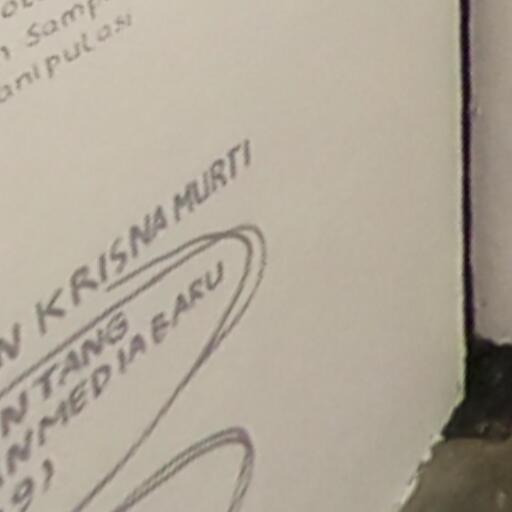 Samp
anipulasi
N KRISNAMURTI
NTANG
AN MEDIA BARU
9)